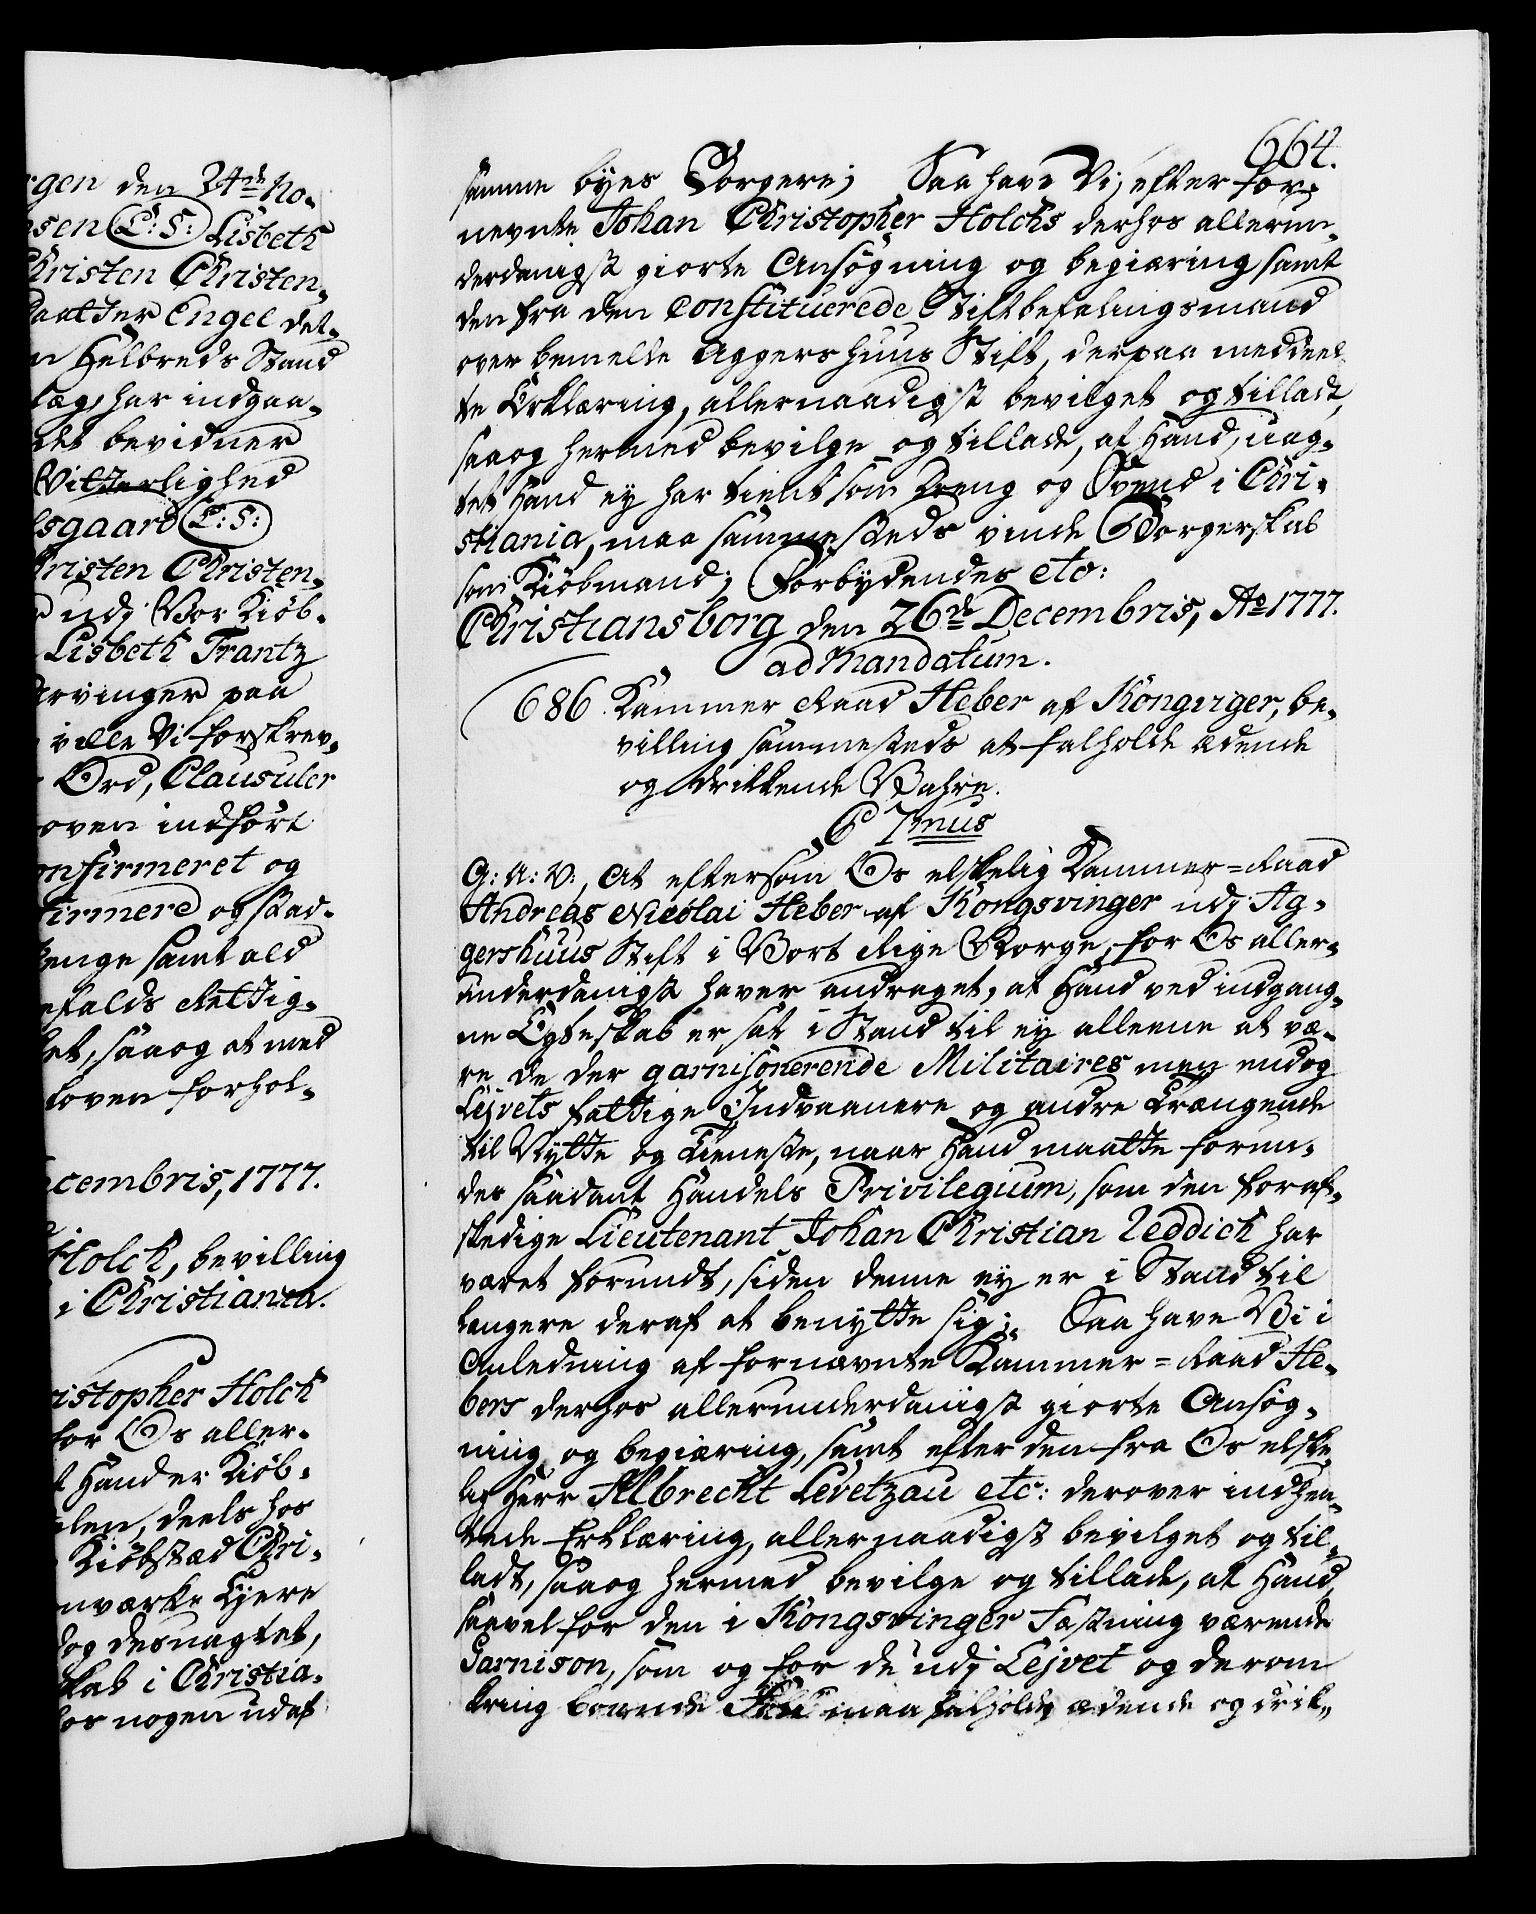 rgen den 24de No-
esen L:S: Lisbeth
Christen Christen-
Daatter Engel det-
n Helbreds Stand
læg, har indgaa-
det bevidner
Vitterlighed
lsgaard L:S:
hristen Christen-
udj Vor Kiøb-
Lisbeth Frantz
Arvinger paa
ville Vi forskrev-
Ord, Clausuler
oven indført
onfirmeret og
firmere og stad-
enge samt ald
efalds Rettig-
et, saaog at med
loven forhol-
ecembris, 1777.
Holck, bevilling
i Christiania.
ristopher Holck
for Os aller-
t Hand er Kiøb-
len, deels hos
Kiøbstæd Chri-
nværk Ejere
dog desuagtet,
skab i Christia-
hos nogen udaf
664.
samme byes Borgere; Saa have Vi, efter for-
nevnte Johan Christopher Holcks derhos allerun-
derdanigst giorte Ansøgning og begiæring, samt
den fra den Constituerede Stiftbefalingsmand
over bemelte Aggershuus Stift, derpaa meddeel-
te Erklæring, allernaadigst bevilget og tilladt,
saaog hermed bevilge og tillade, at Hand, uag-
tet Hand ey har tient som Dreng og Svend i Chri-
stiania, maa sammesteds vinde Borgerskab
som Kiøbmand; Forbydendes etc:
Christiansborg den 26de Decembris, Ao 1777.
ad Mandatum.
686. Kammer Raad Heber af Kongviger, be-
villing sammesteds at falholde ædende
og drikkende Vahre.
C 7mus
G: A: V:, At eftersom Os elskelig Kammer=Raad
Andreas Nicolai Heber af Kongsvinger udj Ag-
gershuus Stift i Vort Rige Norge, for Os aller-
underdanigst haver andraget, at Hand ved indgang-
ne Egteskab er sat i Stand til ey alleene at væ-
re de der garnisonerende Militaires men endog
Lejvets fattige Indvaanere og andre trængende
til Nytte og tieneste, naar Hand maatte forun-
des saadant Handels Privilegium, som den foraf-
skedige Lieutenant Johan Christian Zeddich har
været forundt, siden denne ey er i Stand til
længere deraf at benytte sig; Saa have Vi i
Anledning af fornævnte Kammer=Raad He-
bers derhos allerunderdanigst giorte Ansøg-
ning og begiæring, samt efter den fra Os elske-
lig Herr Albrecht Levetzau etc: derover indhen-
tede Erklæring, allernaadigst bevilget og til-
ladt, saaog hermed bevilge og tillade, at Hand,
saavel for den i Kongsvinger Fæstning værende
Garnison, som og for de udj Lejvet og derom
kring boende Folk maa falholde ædende og drik-